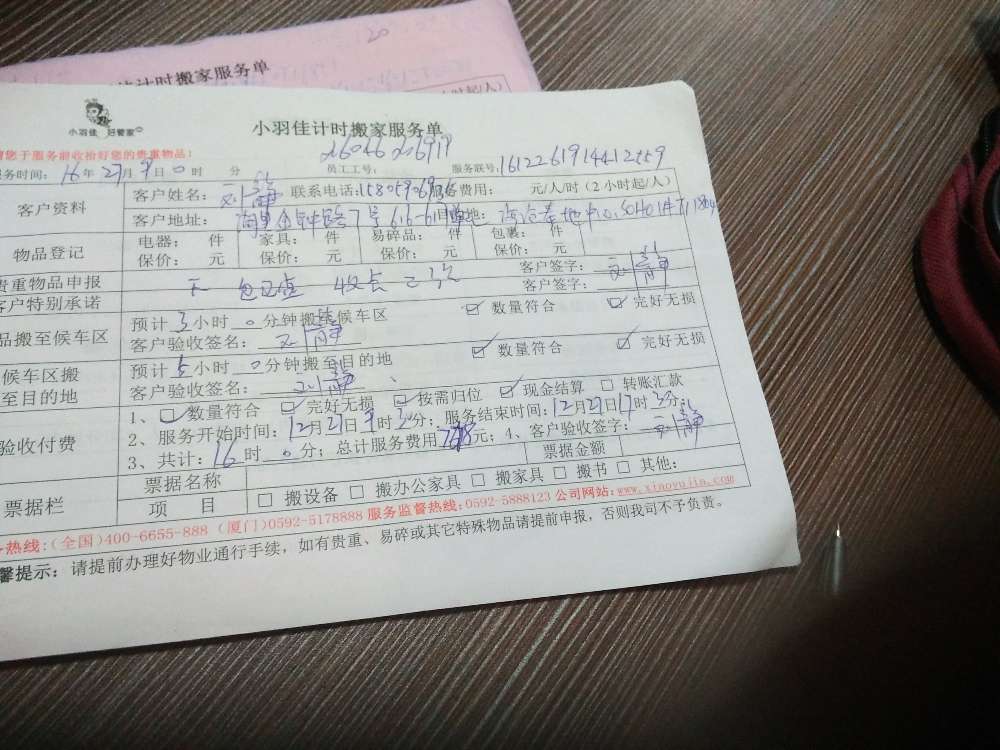 计时搬家服务单
时起/人）
小羽佳 好管家
小羽佳计时搬家服务单
请您于服务前收拾好您的贵重物品！
员工工号：
服务联号：1612261914412559
服务时间：16年 27月 9日 0时 分
客户资料
客户姓名：刘静 联系电话： 服务费用： 元/人/时（2小时起/人）
客户地址： 目的地：
物品登记
电器： 件 家具： 件 易碎品： 件 包裹： 件
保价： 元 保价： 元 保价： 元 保价： 元
贵重物品申报
无 客户签字：刘静
客户特别承诺
客户签字：
品搬至候车区
预计3小时0分钟搬至候车区 ☑ 数量符合 ☑ 完好无损
客户验收签名：刘静
候车区搬至目的地
预计5小时0分钟搬至目的地 ☑ 数量符合 ☑ 完好无损
客户验收签名：刘静
验收付费
1、☑ 数量符合 ☑ 完好无损 ☑ 按需归位 ☑ 现金结算 □ 转账汇款
2、服务开始时间：12月27日9时30分；服务结束时间：12月27日17时30分；
3、共计：16时0分；总计服务费用 元；4、客户验收签字：刘静
票据栏
票据名称 票据金额
项 目 □ 搬设备 □ 搬办公家具 □ 搬家具 □ 搬书 □ 其他：
务热线：（全国）400-6655-888（厦门）0592-5178888 服务监督热线：0592-5888123 公司网站：www.xiaoyujia.com
馨提示：请提前办理好物业通行手续，如有贵重、易碎或其它特殊物品请提前申报，否则我司不予负责。